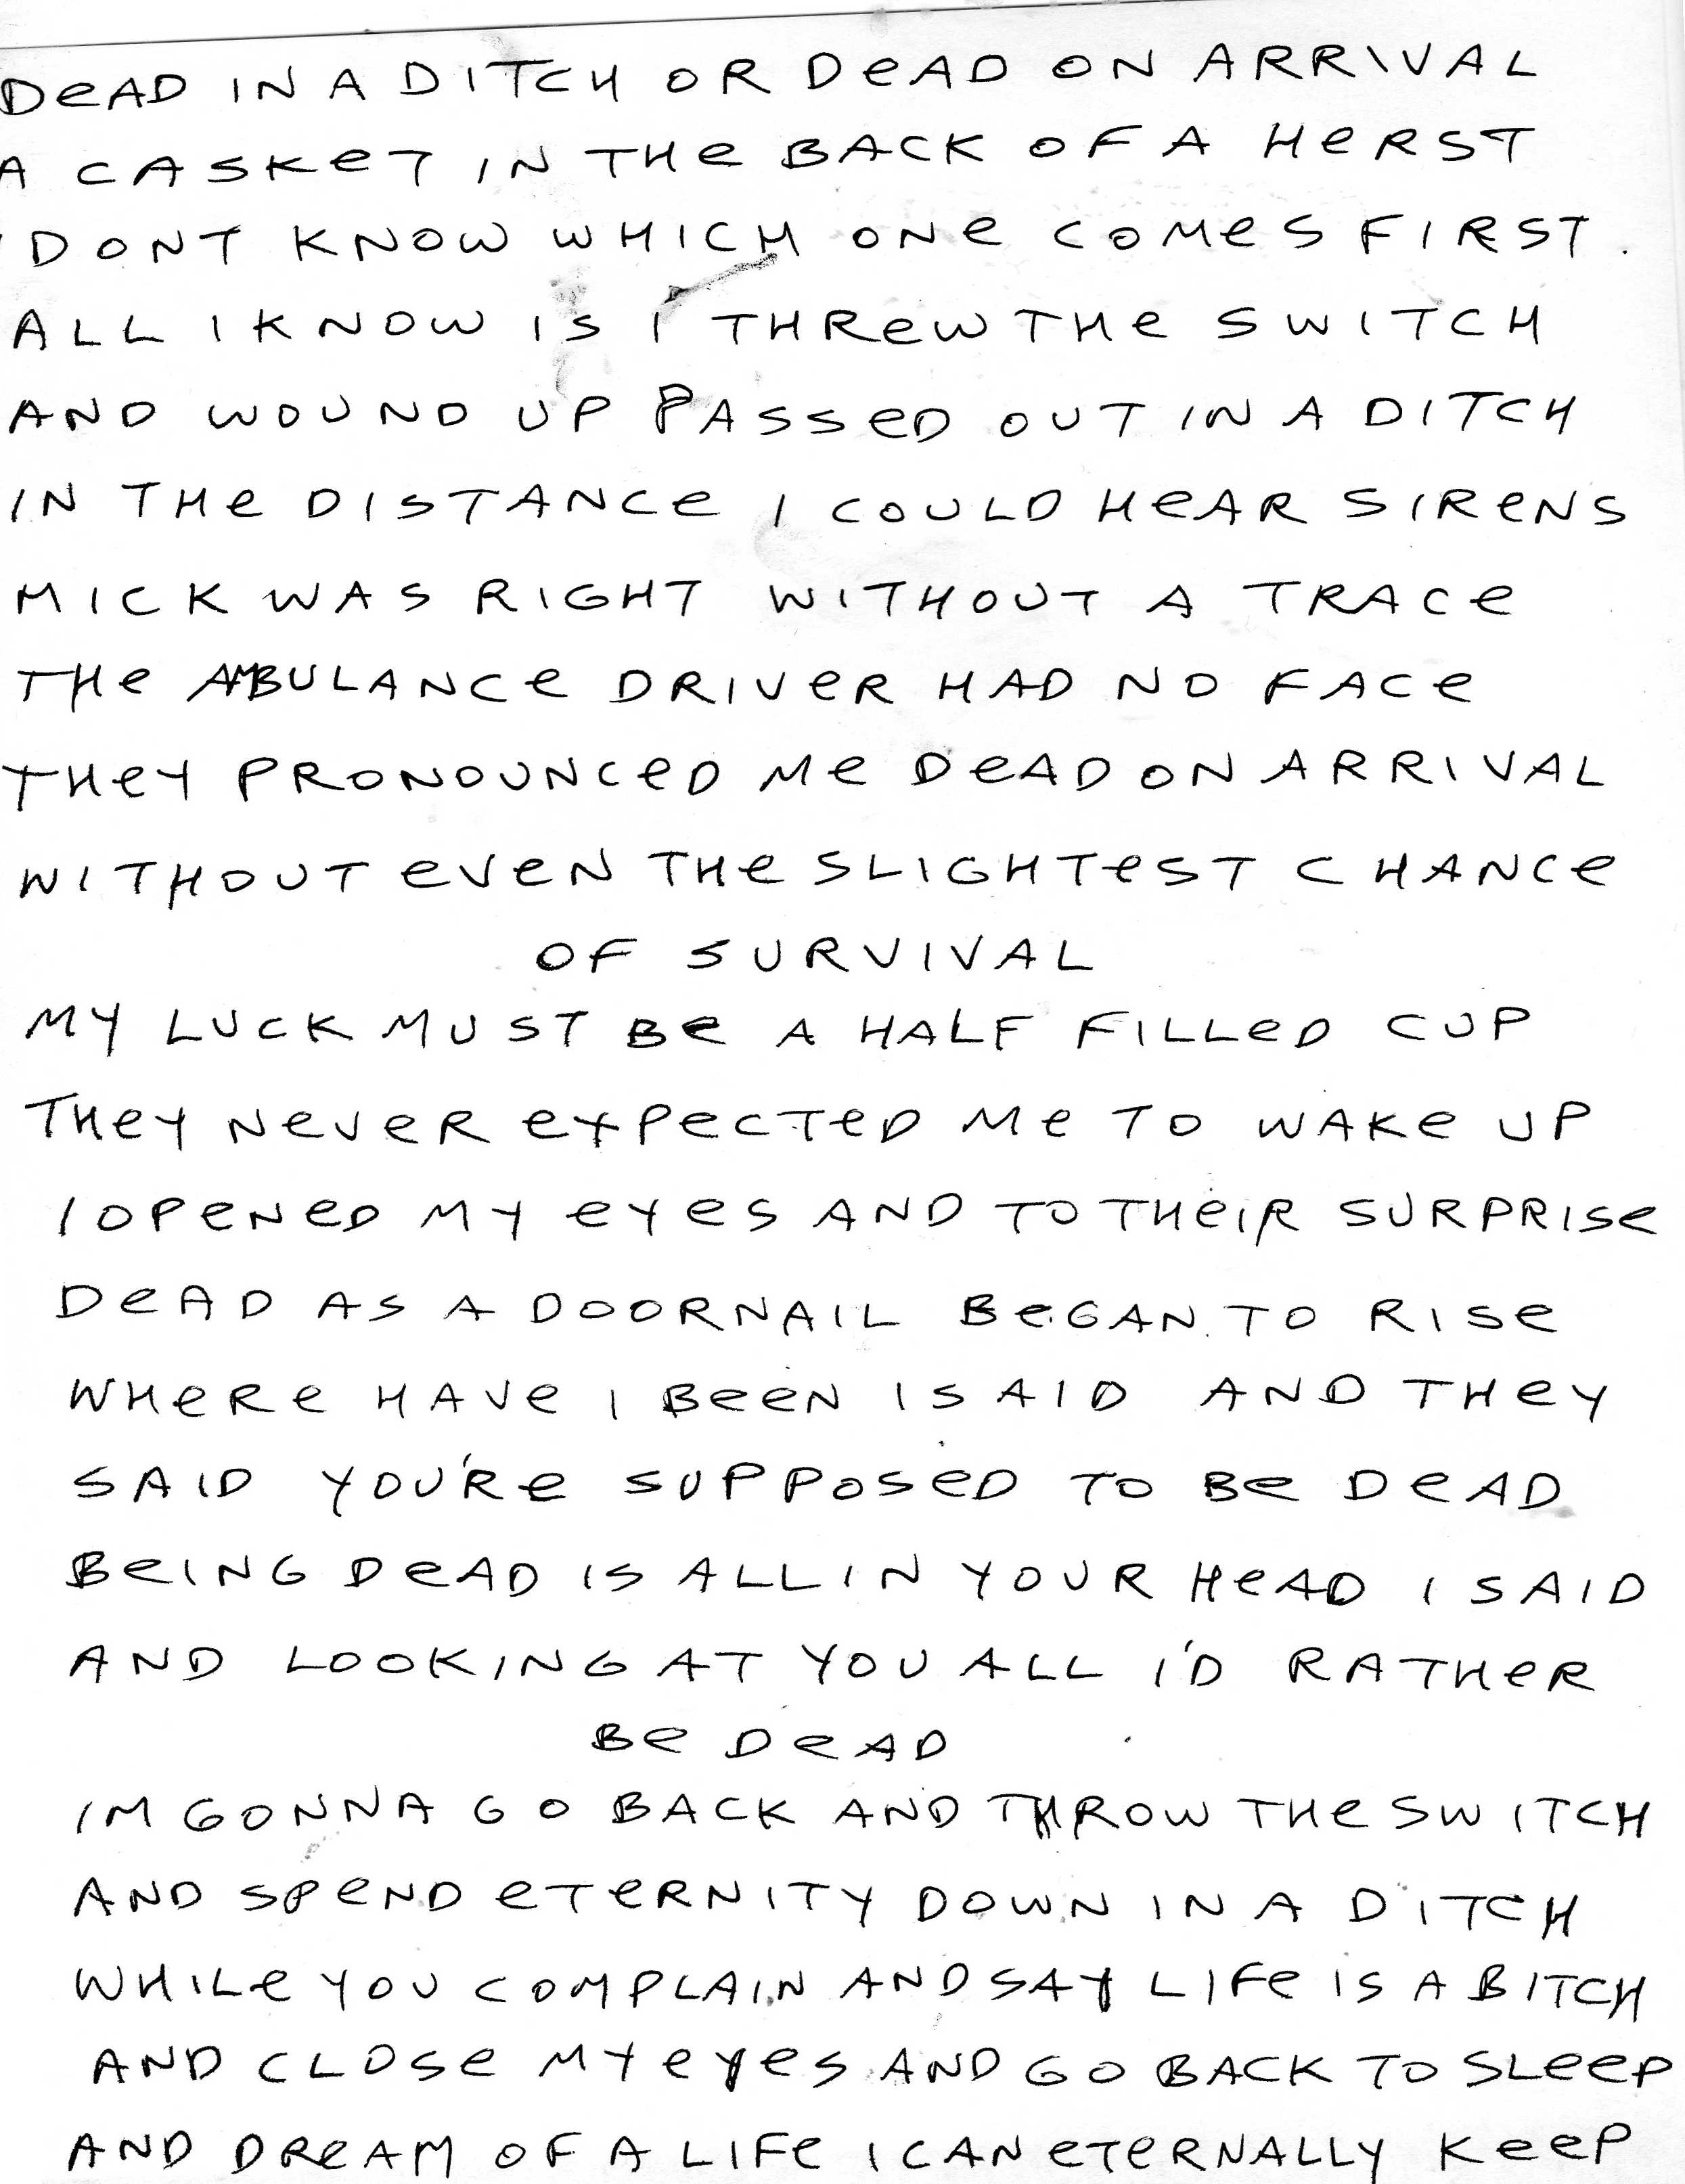 DeAD IN A DITCH OR DeAD ON ARRIVAL
A CASKeT IN THe BACK OF A HeRST
I DONT KNOW WHICH ONe COMeS FIRST.
ALL I KNOW IS I THReW THe SWITCH
AND WOUND UP PASSeD OUT IN A DITCH
IN THe DISTANCe I COULD HeAR SIReNS
MICK WAS RIGHT WITHOUT A TRACe
THe AMBULANCe DRIVeR HAD NO FACe
THeY PRONOUNCeD Me DeAD ON ARRIVAL
WITHOUT eVeN THe SLIGHTeST CHANCe
OF SURVIVAL
MY LUCK MUST Be A HALF FILLeD CUP
THeY NeVeR eXPeCTeD Me TO WAKe UP
I OPeNeD MY eYeS AND TO THeIR SURPRISe
DeAD AS A DOORNAIL BeGAN TO RISe
WHeRe HAVe I BeeN I SAID AND THeY
SAID YOU'Re SUPPOSeD TO Be DeAD
BeING DeAD IS ALL IN YOUR HeAD I SAID
AND LOOKING AT YOU ALL I'D RATHeR
Be DeAD
IM GONNA GO BACK AND THROW THe SWITCH
AND SPeND eTeRNITY DOWN IN A DITCH
WHILe YOU COMPLAIN AND SAY LIFe IS A BITCH
AND CLOSe MY eYeS AND GO BACK TO SLeeP
AND DReAM OF A LIFe I CAN eTeRNALLY KeeP